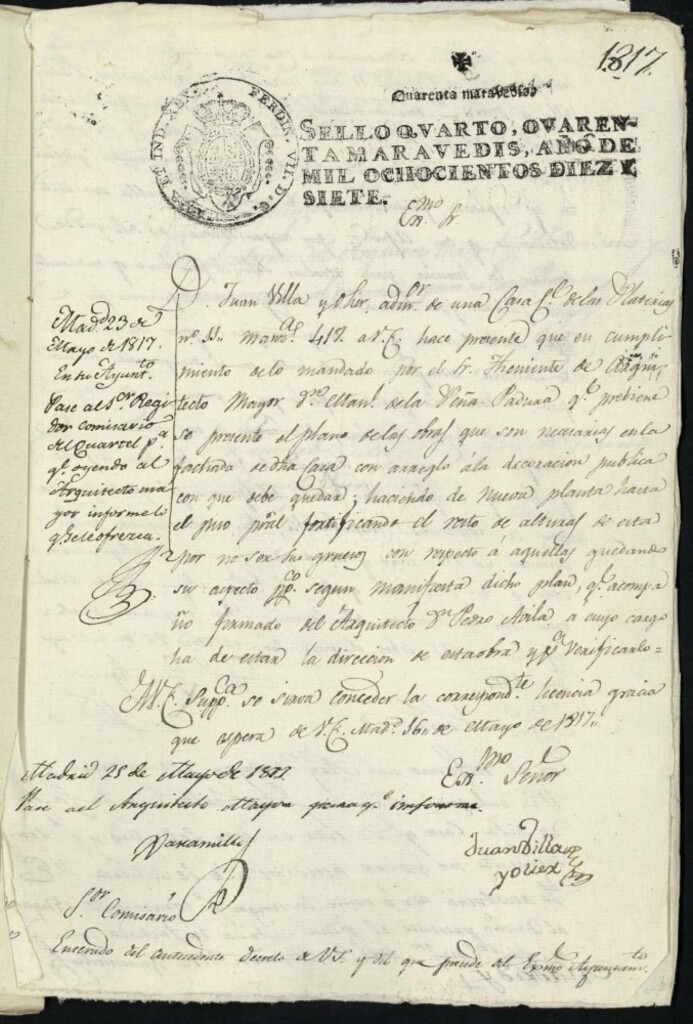 1817.
Quarenta maravedis
SELLO QVARTO, QVAREN-
TA MARAVEDIS, AÑO DE
MIL OCHOCIENTOS DIEZ Y
SIETE.
FERDIN. VII. D. G.
ET IND. REX
Exmo. Sr.
D. Juan Villa y Olier, admor. de una Casa Ce. de las Platerias
nº 11. manza. 417. a V.E. hace presente que en cumpli-
miento de lo mandado por el Sr. Theniente de Arqui-
tecto Mayor Dn. Man. de la Peña Padura qe. prebiene
se presente el plano de las obras que son necesarias en la
fachada de dha Casa con arreglo á la decoracion publica
con que debe quedar; haciendo de nueva planta hasta
el piso pral. fortificando el resto de alturas de esta
por no ser sus gruesos con respecto á aquellas quedando
su aspecto segun manifiesta dicho plan, qe. acompa
ña firmado del Arquitecto Dn. Pedro Avila, a cuyo cargo
ha de estar la direccion de esta obra y pa. verificarlo=
A V.E. Suppca. se sirva conceder la correspondte. licencia gracia
que espera de V.E. Madd. 16,, de Mayo de 1817,,
Exmo. Señor
Juan Villa
y Olier
Madd. 23 de
Mayo de 1817.
En su Ayunto.
Pase al Sor. Regi
dor comisario
del Quartel pa.
qe. oyendo al
Arquitecto ma
yor informe lo
qe. se le ofrezca.
Madrid 25 de Mayo de 1817
Pase al Arquitecto Mayor para qe. informe.
Paramills
Sor. Comisario
Enterado del antecedente decreto de VS. y del que precede del Exmo Ayuntamto.